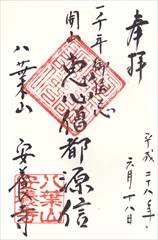 奉拝
平成二十八年
六月十八日
一千年御遠忌
開山 恵心僧都源信
八葉山 安養寺
八葉山
安養寺